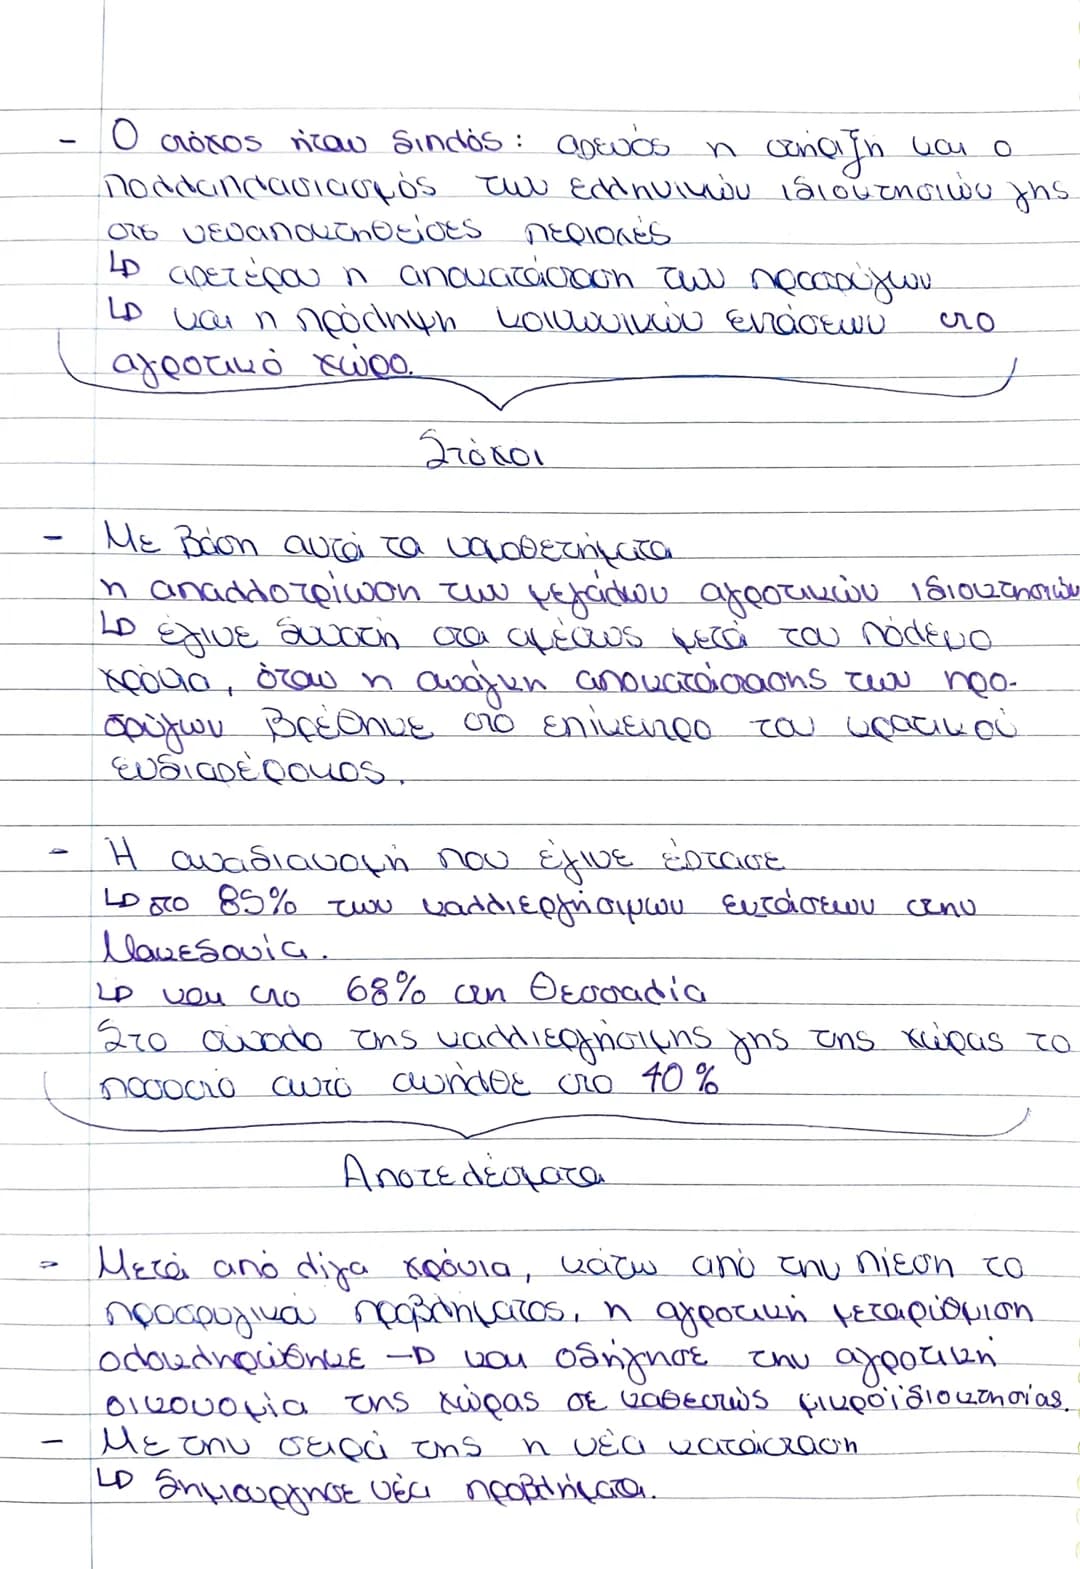 - Ο στόχος ήταν διπλός: αφενός η στήριξη και ο
πολλαπλασιασμός των ελληνικών ιδιοκτησιών γης
στις νεοαποκτηθείσες περιοχές
↳ αφετέρου η αποκατάσταση των προσφύγων
↳ και η πρόληψη κοινωνικών εντάσεων στο
αγροτικό χώρο.
Στόχοι
- Με βάση αυτά τα νομοθετήματα
η απαλλοτρίωση των μεγάλων αγροτικών ιδιοκτησιών
↳ έγινε δυνατή στα αμέσως μετά του πόλεμο
χρόνια, όταν η ανάγκη αποκατάστασης των προ-
σφύγων βρέθηκε στο επίκεντρο του κρατικού
ενδιαφέροντος.
- Η αναδιανομή που έγινε έφτασε
↳ στο 85% των καλλιεργήσιμων εκτάσεων στην
Μακεδονία.
↳ και στο 68% στη Θεσσαλία
Στο σύνολο της καλλιεργήσιμης γης της χώρας το
ποσοστό αυτό ανήλθε στο 40%
Αποτελέσματα
- Μετά από λίγα χρόνια, κάτω από την πίεση το
προσφυγικού προβλήματος, η αγροτική μεταρύθμιση
ολοκληρώθηκε → και οδήγησε την αγροτική
οικονομία της χώρας σε καθεστώς μικροϊδιοκτησίας.
- Με την σειρά της η νέα κατάσταση
↳ δημιούργησε νέα προβλήματα.